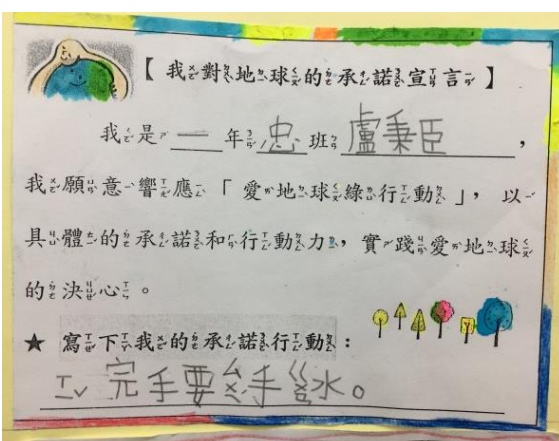 【我對地球的承諾宣言】
我是 一 年 忠 班 盧秉臣 ，
我願意響應「愛地球綠行動」，以
具體的承諾和行動力，實踐愛地球
的決心。
★ 寫下我的承諾行動：
ㄒㄧˇ完手要ㄙㄨㄟˊ手ㄍㄨㄢ水。